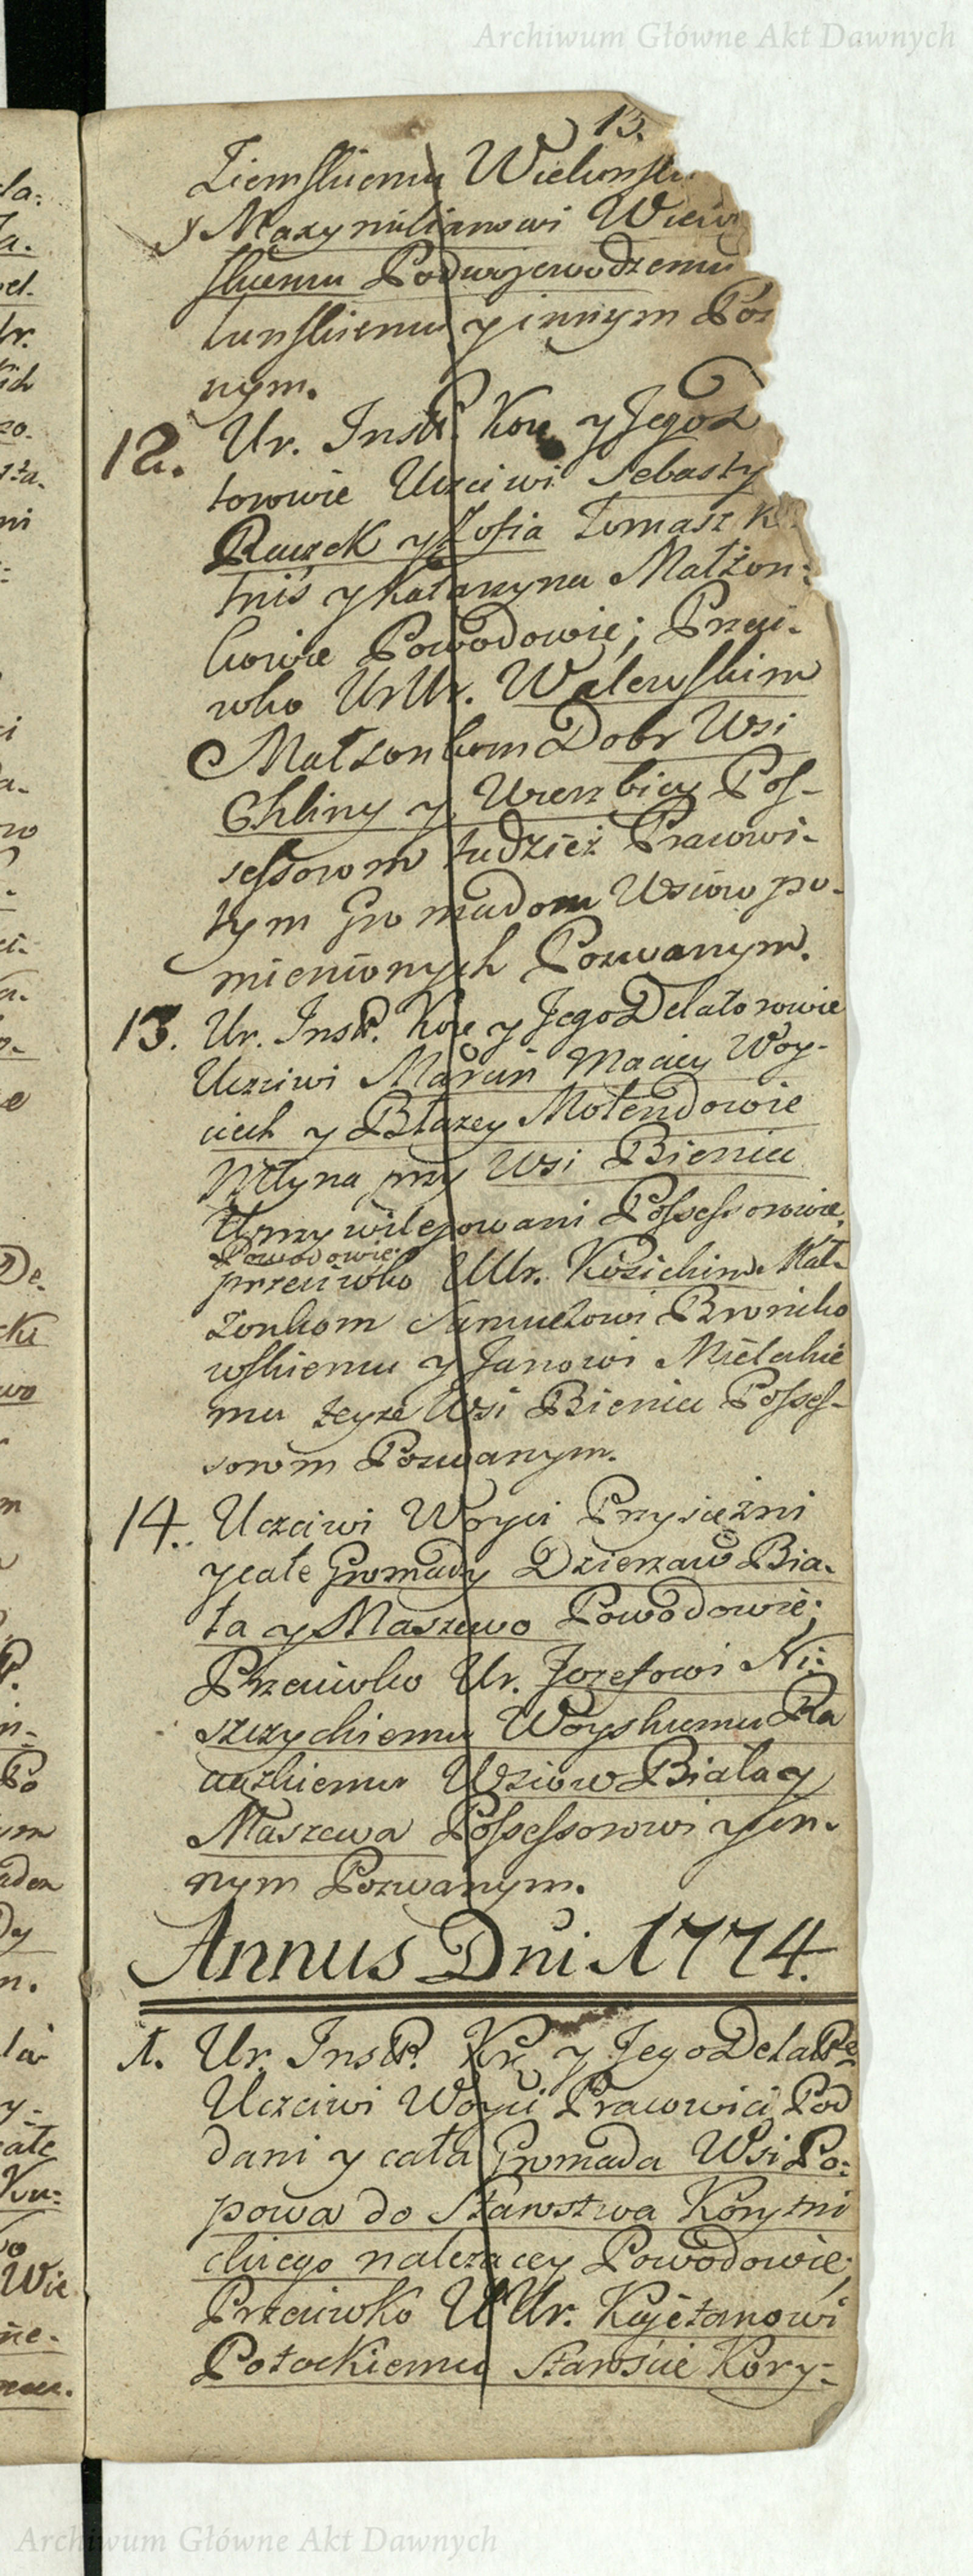 Archiwum Główne Akt Dawnych
13.
Ziemskiemu Wielunsk
y Maxymilianowi Wiew
skiemu Podwojewodzemu
lunskiemu y innym Poz
nym.
12. Ur. Inst. Kor y Jego
torowie Uczciwi Sebasty
Raczek y Zofia Tomasz K
tnis y Katarzyna Małżon:
kowie Powodowie; Przeci-
wko UrUr. Walewskim
Małżonkom Dobr Wsi
Chliny y Wierzbicy Pos-
sessorom tudzież Prawowi-
tym Gromadom Wsiow po-
mienionych Pozwanym.
13. Ur. Inst. Kor y Jego Delatorowie
Uczciwi Marcin Maciey Woy-
ciech y Błazey Mołendowie
Młyna przy Wsi Bieniec
Uprzywilejowani Possessorowie
Powodowie;
przeciwko UUr. Kosickim Mał-
żonkom Samuelowi Broniko
wskiemu y Janowi Mielckie
mu teyze Wsi Bieniec Posses-
sorom Pozwanym.
14. Uczciwi Woyci Przysiężni
y całe Gromady Dzierzaw Bia-
ła y Maszewo Powodowie;
Przeciwko Ur. Jozefowi Ni:
szczyckiemu Woyskiemu Ra
ciązkiemu Wsiow Biała y
Maszewa Possessorowi y in-
nym Pozwanym.
Annus Dni 1774.
1. Ur. Inst. Kr y Jego Delat
Uczciwi Woyci Prawowici Pod
dani y cała Gromada Wsi Po:
powa do Starostwa Korytni
ckiego nalezącey Powodowie;
Przeciwko UUr. Kajetanowi
Potockiemu Staroście Kory-
Archiwum Główne Akt Dawnych